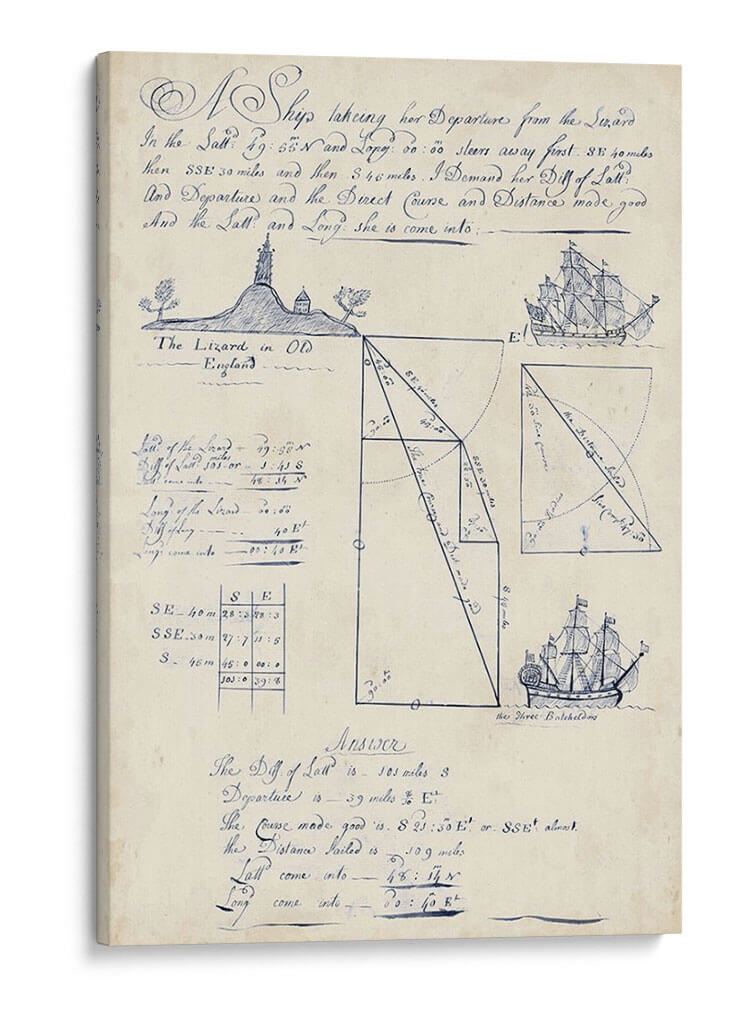 A Ship takeing her Departure from the Lizard
In the Lattd: 49:55 N and Longd: 00:00 steers away first SE 40 miles
then SSE 30 miles and then S 46 miles. I Demand her Diff of Lattd:
And Departure and the Direct Course and Distance made good
And the Lattd: and Longd: she is come into:
The Lizard in Old
England
E
45:00
SE 40 miles
90:00
45:00
SSE 30 miles
The true Course and Dist made good
S 46 miles
90:00
the Distance sailed
the Three Batcheldors
Lattd of the Lizard 49:55 N
Diff of Lattd 101 miles or 1:41 S
Lattd come into 48:14 N
Longd of the Lizard 00:00
Diff of Long 40 Et
Longd come into 00:40 Et
S E
SE 40 m 28:3 28:3
SSE 30 m 27:7 11:5
S 46 m 45:0 00:0
101:0 39:8
Answer
The Diff. of Lattd is 101 miles S
Departure is 39 miles 8/10 Et
The Course made good is S 21:30 Et or SSEt almost.
the Distance Sailed is 109 miles
Lattd come into 48:14 N
Longd come into 00:40 Et